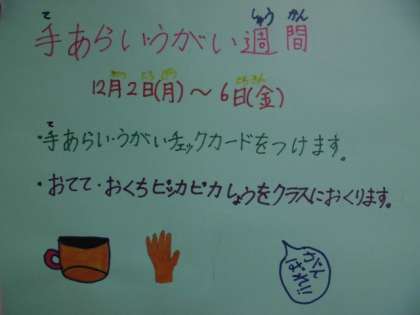 手あらいうがい週間
12月2日(月)～6日(金)
・手あらい・うがいチェックカードをつけます。
・おてて・おくちピッカピカしょうをクラスにおくります。
がん
ばれ!!